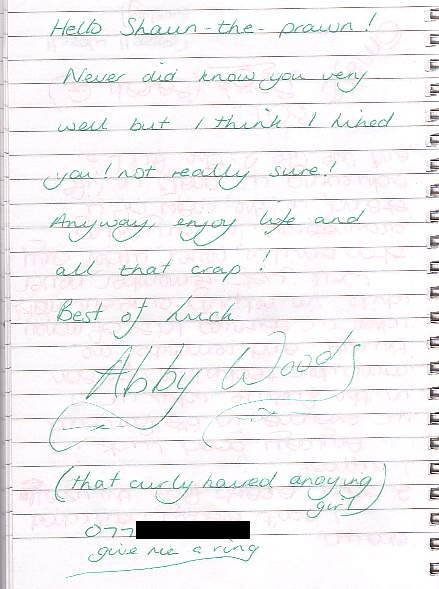 Hello Shaun-the-prawn!
Never did know you very
well but I think I liked
you! not really sure!
Anyway, enjoy life and
all that crap!
Best of Luck
Abby Woods
(that curly haired anoying
girl)
077
give me a ring